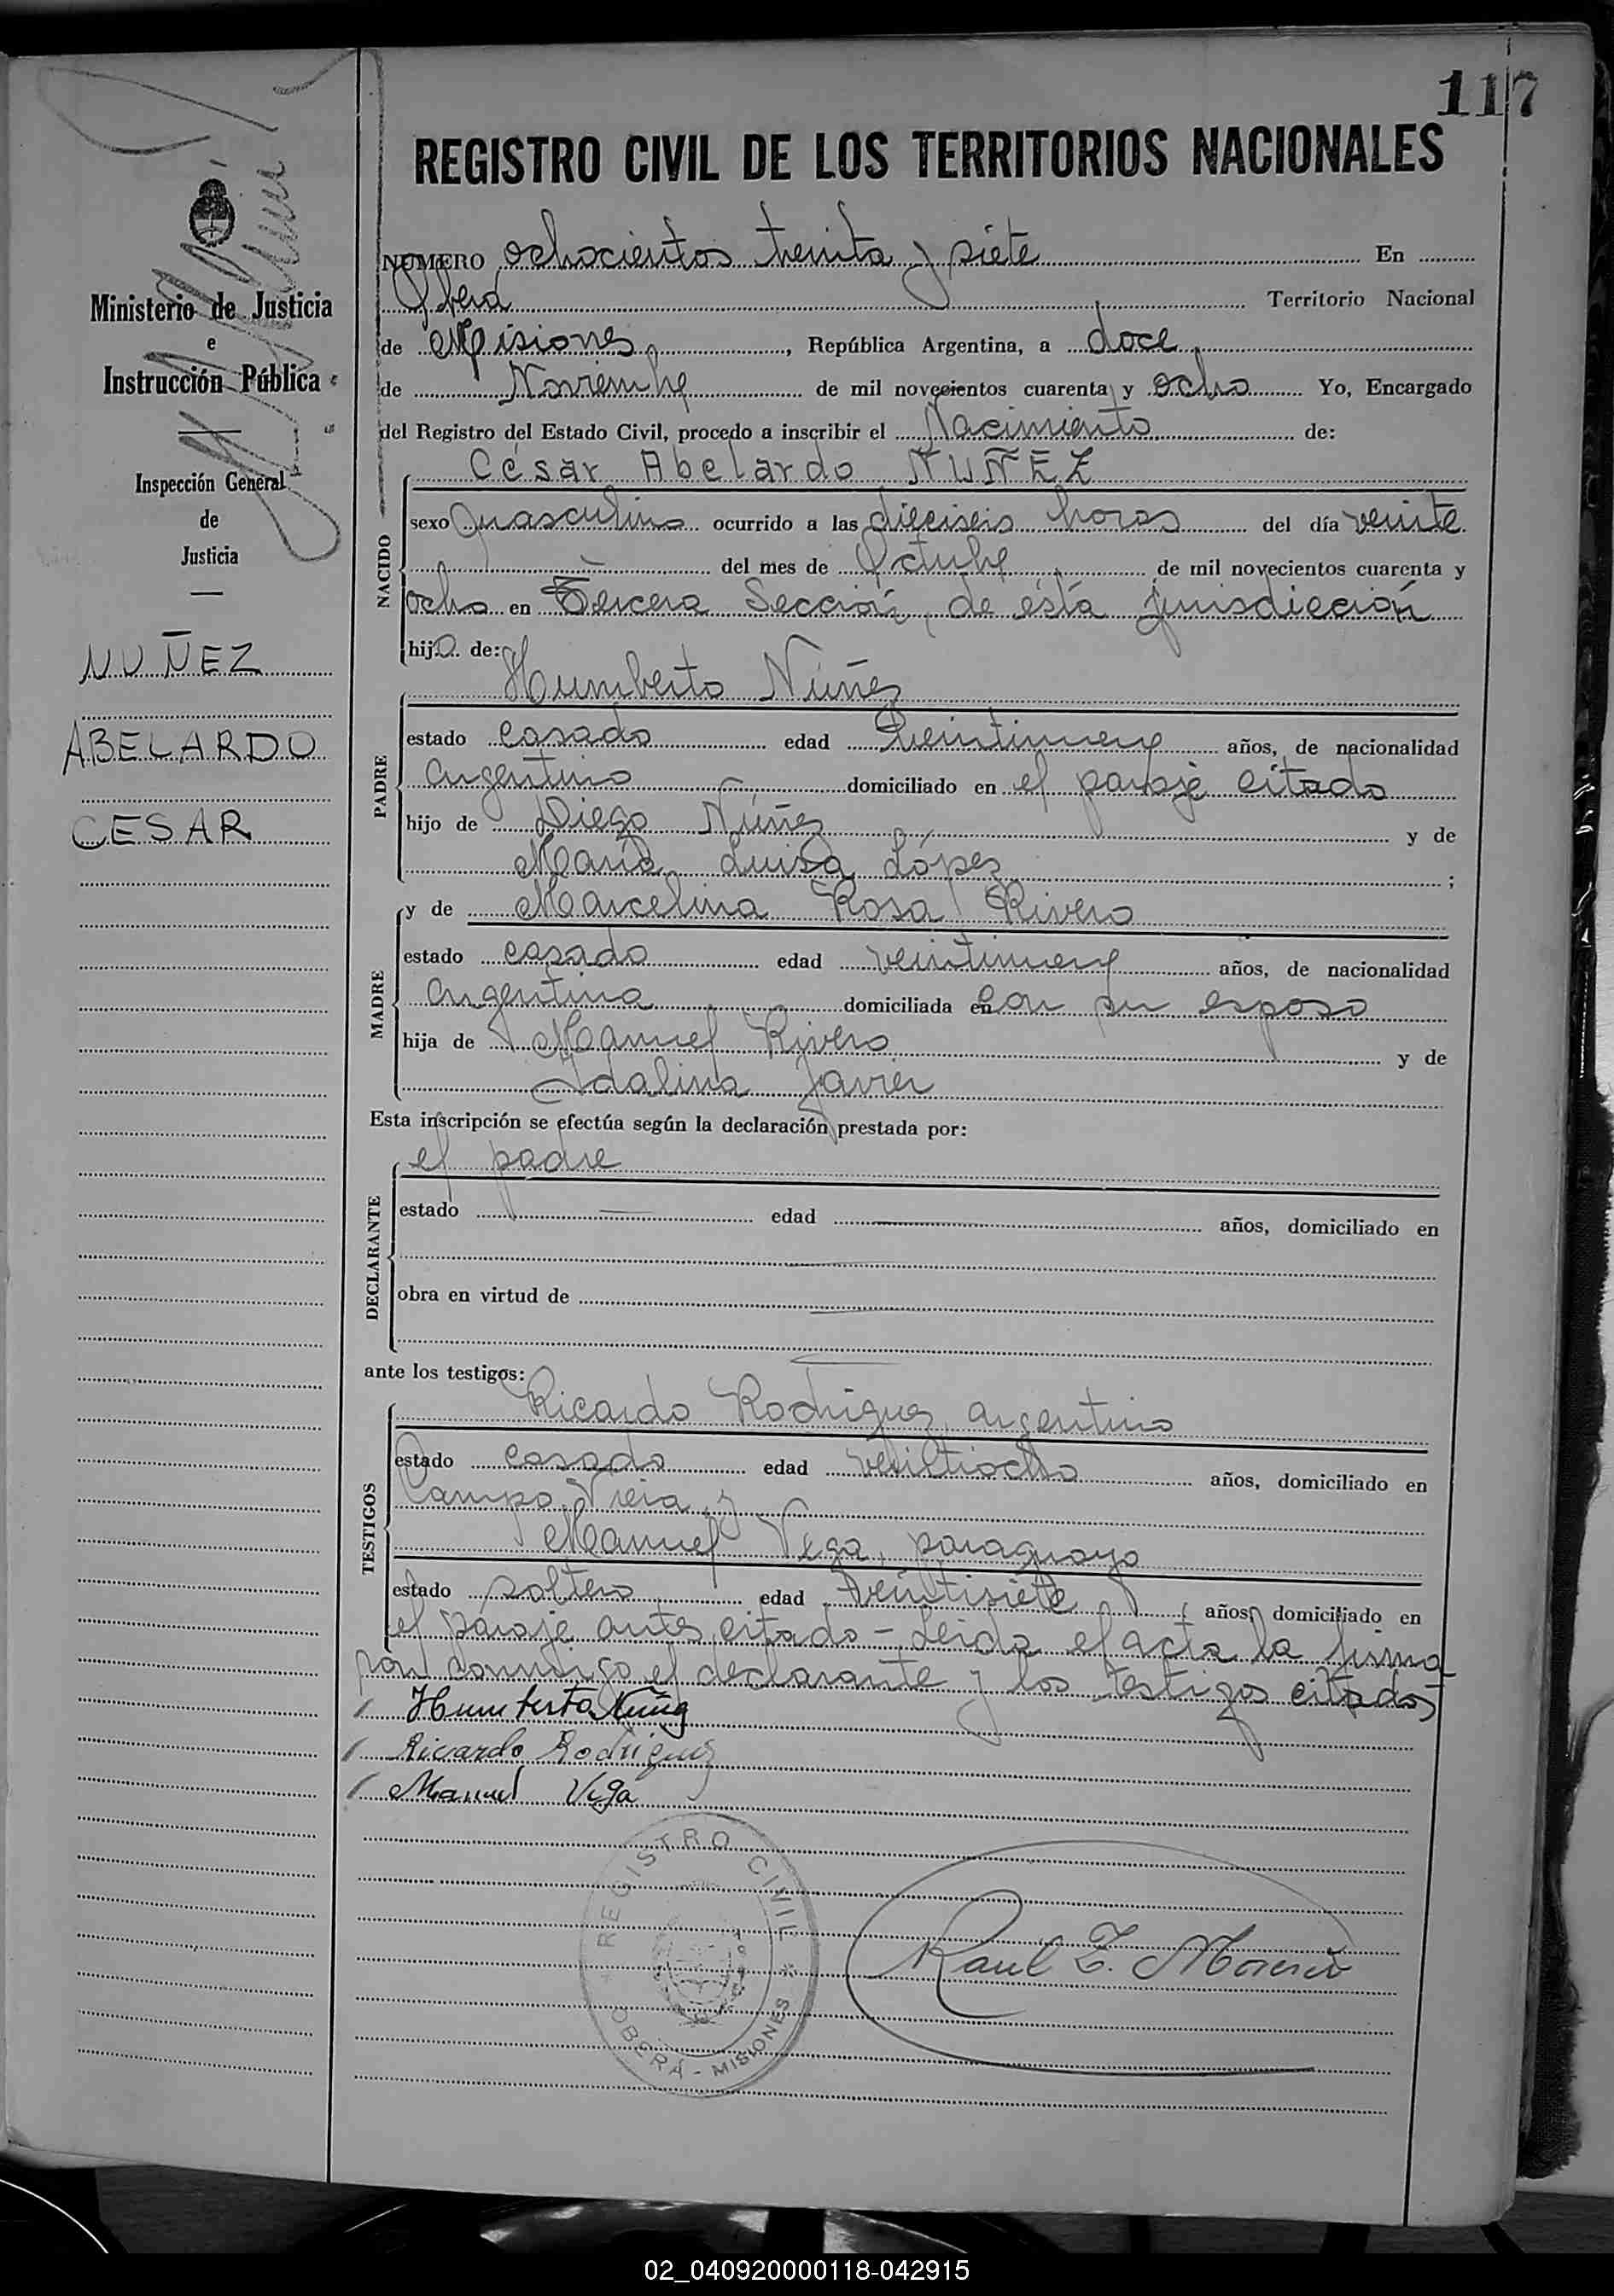 117
REGISTRO CIVIL DE LOS TERRITORIOS NACIONALES
Ministerio de Justicia
e
Instrucción Pública
Inspección General
de
Justicia
NUÑEZ
ABELARDO
CESAR
NUMERO ochocientos treinta y siete En
Oberá Territorio Nacional
de Misiones, República Argentina, a doce
de Noviembre de mil novecientos cuarenta y ocho Yo, Encargado
del Registro del Estado Civil, procedo a inscribir el Nacimiento de:
NACIDO
César Abelardo NUÑEZ
sexo masculino ocurrido a las dieciseis horas del día veinte
del mes de Octubre de mil novecientos cuarenta y
ocho en Tercera Sección, de ésta jurisdicción
hijo de:
PADRE
Humberto Núñez
estado casado edad veintinueve años, de nacionalidad
argentino domiciliado en el paraje citado
hijo de Diego Núñez y de
María Luisa López ;
MADRE
y de Marcelina Rosa Rivero
estado casada edad veintinueve años, de nacionalidad
argentina domiciliada en con su esposo
hija de Manuel Rivero y de
Idalina Javier
Esta inscripción se efectúa según la declaración prestada por:
DECLARANTE
el padre
estado edad años, domiciliado en
obra en virtud de
ante los testigos:
TESTIGOS
Ricardo Rodríguez, argentino
estado casado edad veintiocho años, domiciliado en
Campo Viera, y
Manuel Vega, paraguayo
estado soltero edad veintisiete años, domiciliado en
el paraje antes citado - Leida el acta la firma
con conmigo el declarante y los testigos citados
Humberto Núñez
Ricardo Rodriguez
Manuel Vega
REGISTRO CIVIL
OBERÁ - MISIONES
Raul
02_040920000118-042915